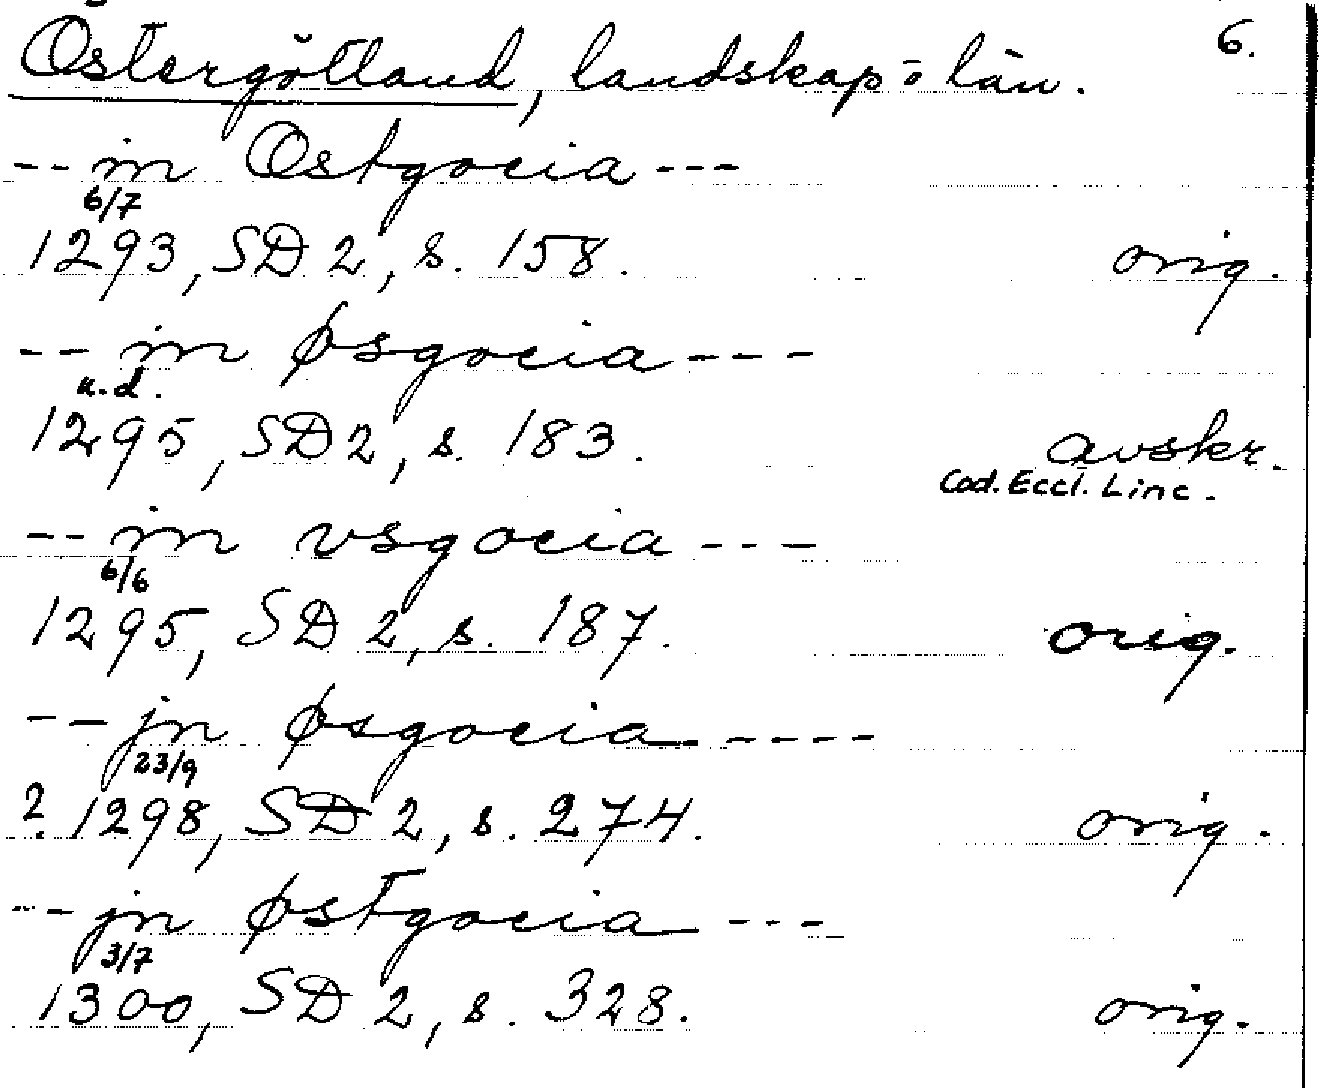 Östergötland, landskap o län. 6.
-- in Ostgocia ---
6/7
1293, SD 2, s. 158. orig.
-- in øsgocia ---
u.d.
1295, SD 2, s. 183. avskr.
Cod. Eccl. Linc.
-- in vsgocia ---
6/6
1295, SD 2, s. 187. orig.
-- jn øsgocia ----
23/9
?. 1298, SD 2, s. 274. orig.
-- jn østgocia ---
3/7
1300, SD 2, s. 328. orig.